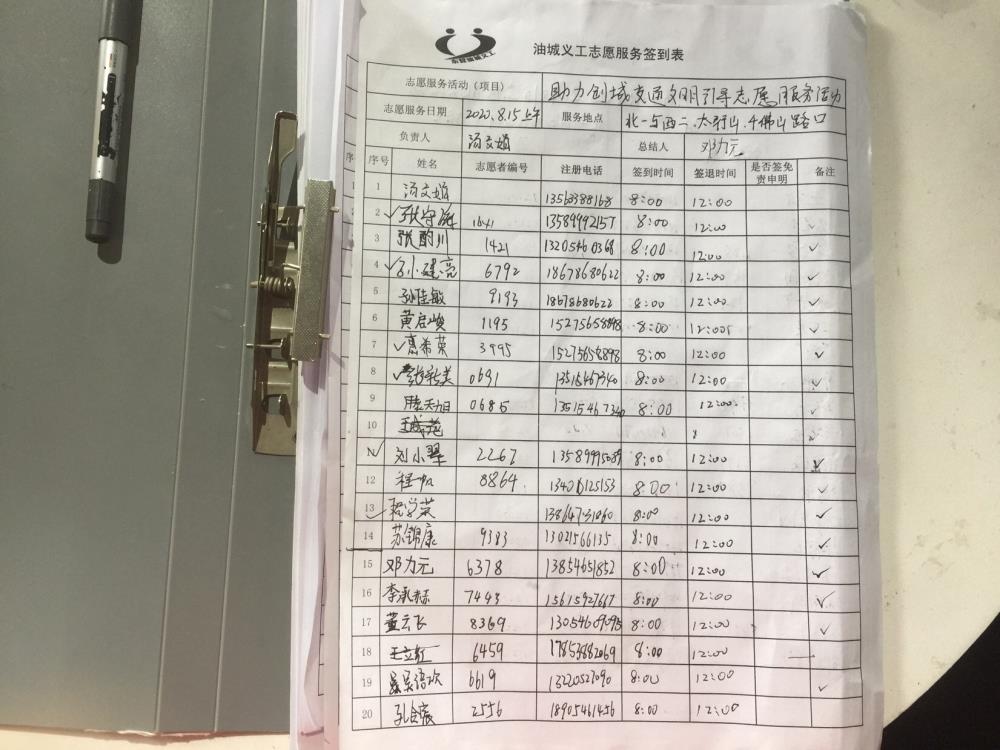 油城义工志愿服务签到表
志愿服务活动（项目） 助力创城交通文明引导志愿服务活动
志愿服务日期 2020.8.15上午 服务地点 北一与西二、太行山、千佛山路口
负责人 汤文娟 总结人 邓力元
序号 姓名 志愿者编号 注册电话 签到时间 签退时间 是否签免责申明 备注
1 汤文娟 8:00 12:00
2 1641 13589992157 8:00 12:00
3 张酌川 1421 13205460368 8:00 12:00
4 6792 18678680622 8:00 12:00
5 孙佳敏 9193 18678680622 8:00 12:00
6 黄启峻 1195 8:00 12:00
7 惠希荣 3995 15275658898 8:00 12:00
8 0691 8:00 12:00
9 0685 8:00 12:00
10
刘小翠 2267 8:00 12:00
12 程帆 8864 8:00 12:00
13 13864731060 8:00 12:00
14 苏锦康 9383 13021566135 8:00 12:00
15 邓力元 6378 13854651852 8:00 12:00
16 7443 15615927667 8:00 12:00
17 董云飞 8369 13054609095 8:00 12:00
18 王立红 6459 17853882069 8:00 12:00
19 6619 13220527090 8:00 12:00
20 2556 18905461456 8:00 12:00